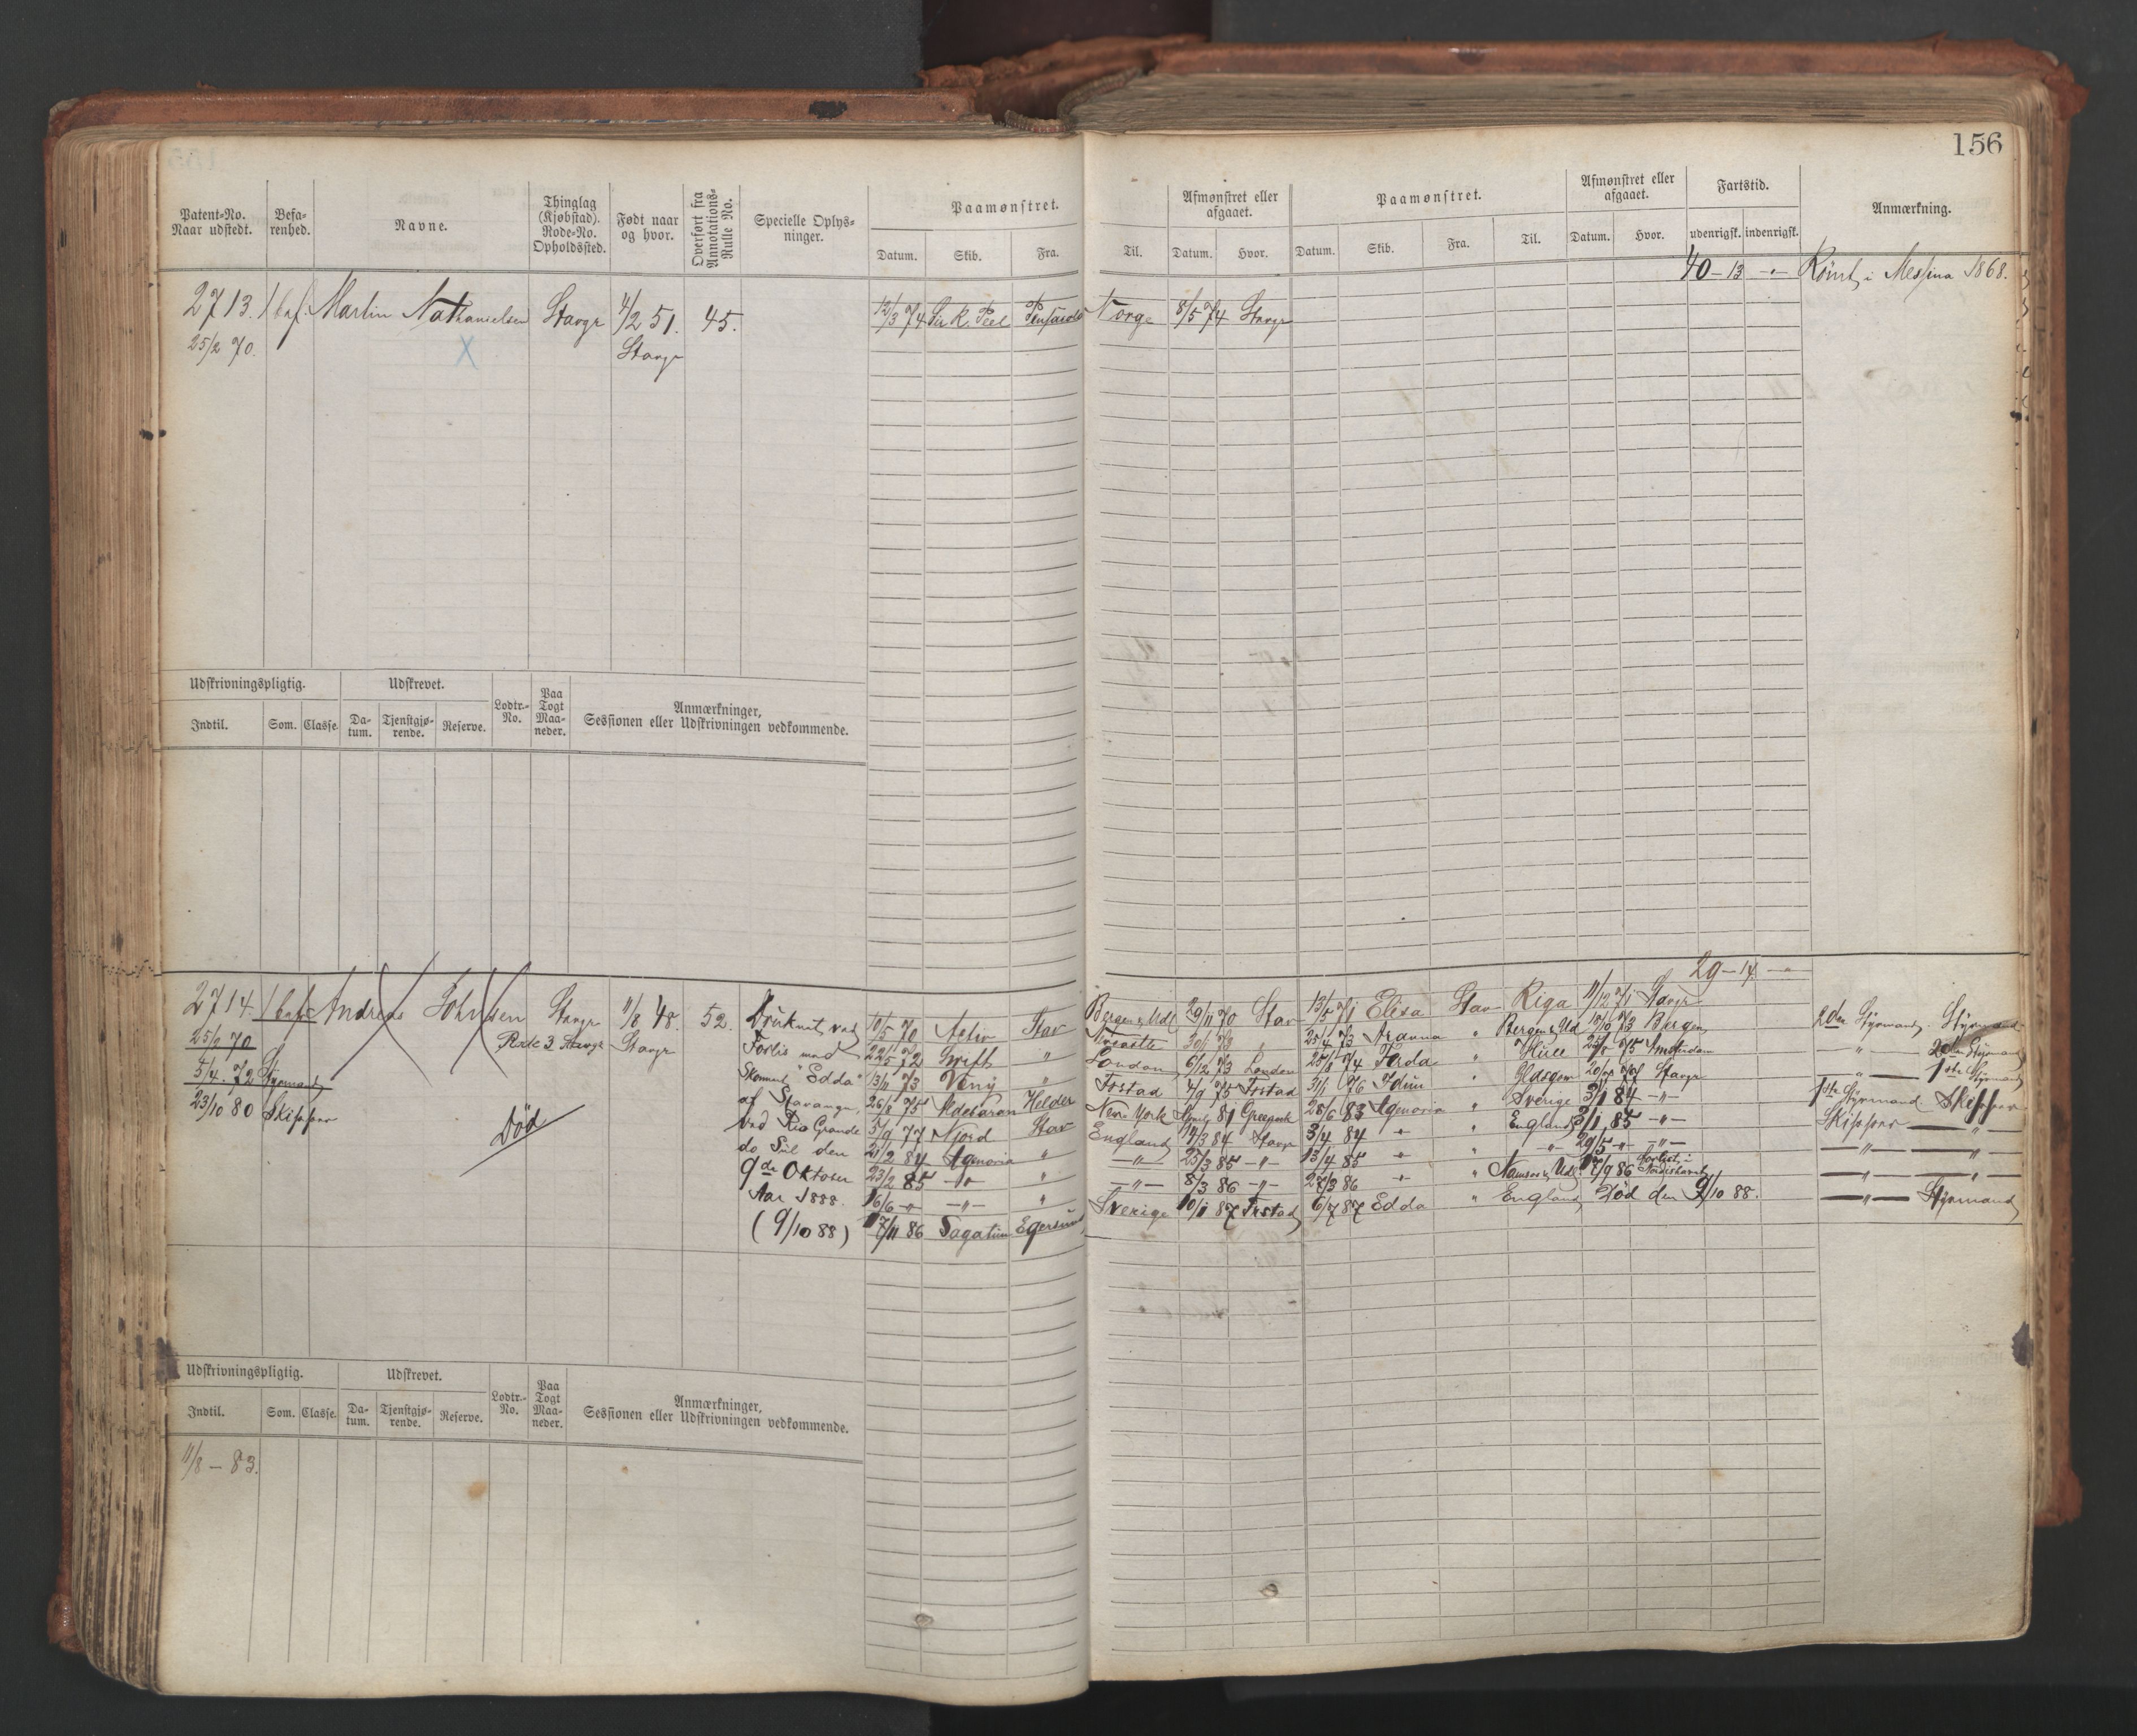 156
Patent-No. Naar udstedt. Befa-renhed. Navne. Thinglag (Kjøbstad). Rode-No. Opholdssted. Født naar og hvor. Overført fra Annotations-Rulle No. Specielle Oplys-ninger. Paamønstret. Afmønstret eller afgaaet. Paamønstret. Afmønstret eller afgaaet. Fartstid. Anmærkning.
Datum. Skib. Fra. Til. Datum. Hvor. Datum. Skib. Fra. Til. Datum. Hvor. udenrigsk. indenrigsk.
40-13 -"- Rømt i Messina 1868.
2713. 1 bef. Martin Nathanielsen Stavgr 4/2 51. 45. 12/3 74 Sir R. Peel Pensacola Norge 8/5 74 Stavgr
25/2 70. X Stavgr
Udskrivningspligtig. Udskrevet. Lodtr.-No. Paa Togt Maa-neder. Anmærkninger, Sessionen eller Udskrivningen vedkommende.
Indtil. Som. Classe. Da-tum. Tjenstgjø-rende. Reserve.
29-14 -"-
2714. 1 bef. Andreas Johnsen Stavgr 11/8 48. 52. Druknet ved 10/5 70 Activ Stav Bergen & Udl 29/11 70 Stav 13/5 71 Elisa Stav Riga 11/12 71 Stavgr 2den Styrmand. Styrmand
25/2 70 Rode 3 Stavgr Stavgr Forlis med 22/5 72 Grift " 30/1 73 " 25/4 73 " Bergen & Udl 10/9 73 Bergen -"- 2den Styrmand
5/4. 72 Styrmand Skonnert "Edda" 13/11 73 Veny " London 6/12 73 London 25/8 74 Ferda " 75 Amsterdam -"- 1ste Styrmand
23/10 80 Skipper af Stavanger, 26/8 75 Aldebaran Helder Frstad 4/9 75 Frstad 31/1 76 Idun " Stavgr 1ste Styrmand Skipper
Død ved Rio Grande 5/9 77 Njord Stav New York 81 Greenock 28/6 83 Agmoria " Sverige 3/1 84 -"- Skipper -"-
do Sul den 21/2 84 Agmoria " England 14/3 84 Stavgr 3/4 84 " " England 3/1 85 -"- -"- -"-
9de Oktober 23/2 85 -"- " -"- 25/3 85 -"- 13/4 85 " -"- 29/5 -"- -"- -"- -"-
Aar 1888. 16/6 -"- -"- " -"- 8/3 86 -"- 27/3 86 " " Namsos & Udl 17/9 86 Forlist i Nordishavet -"- -"-
(9/10 88) 17/11 86 Sagatun Egersund Sverige 10/1 87 Frstad 6/7 87 Edda " England Død den 9/10 88. -"- Styrmand
Udskrivningspligtig. Udskrevet. Lodtr.-No. Paa Togt Maa-neder. Anmærkninger, Sessionen eller Udskrivningen vedkommende.
Indtil. Som. Classe. Da-tum. Tjenstgjø-rende. Reserve.
11/8 - 83.